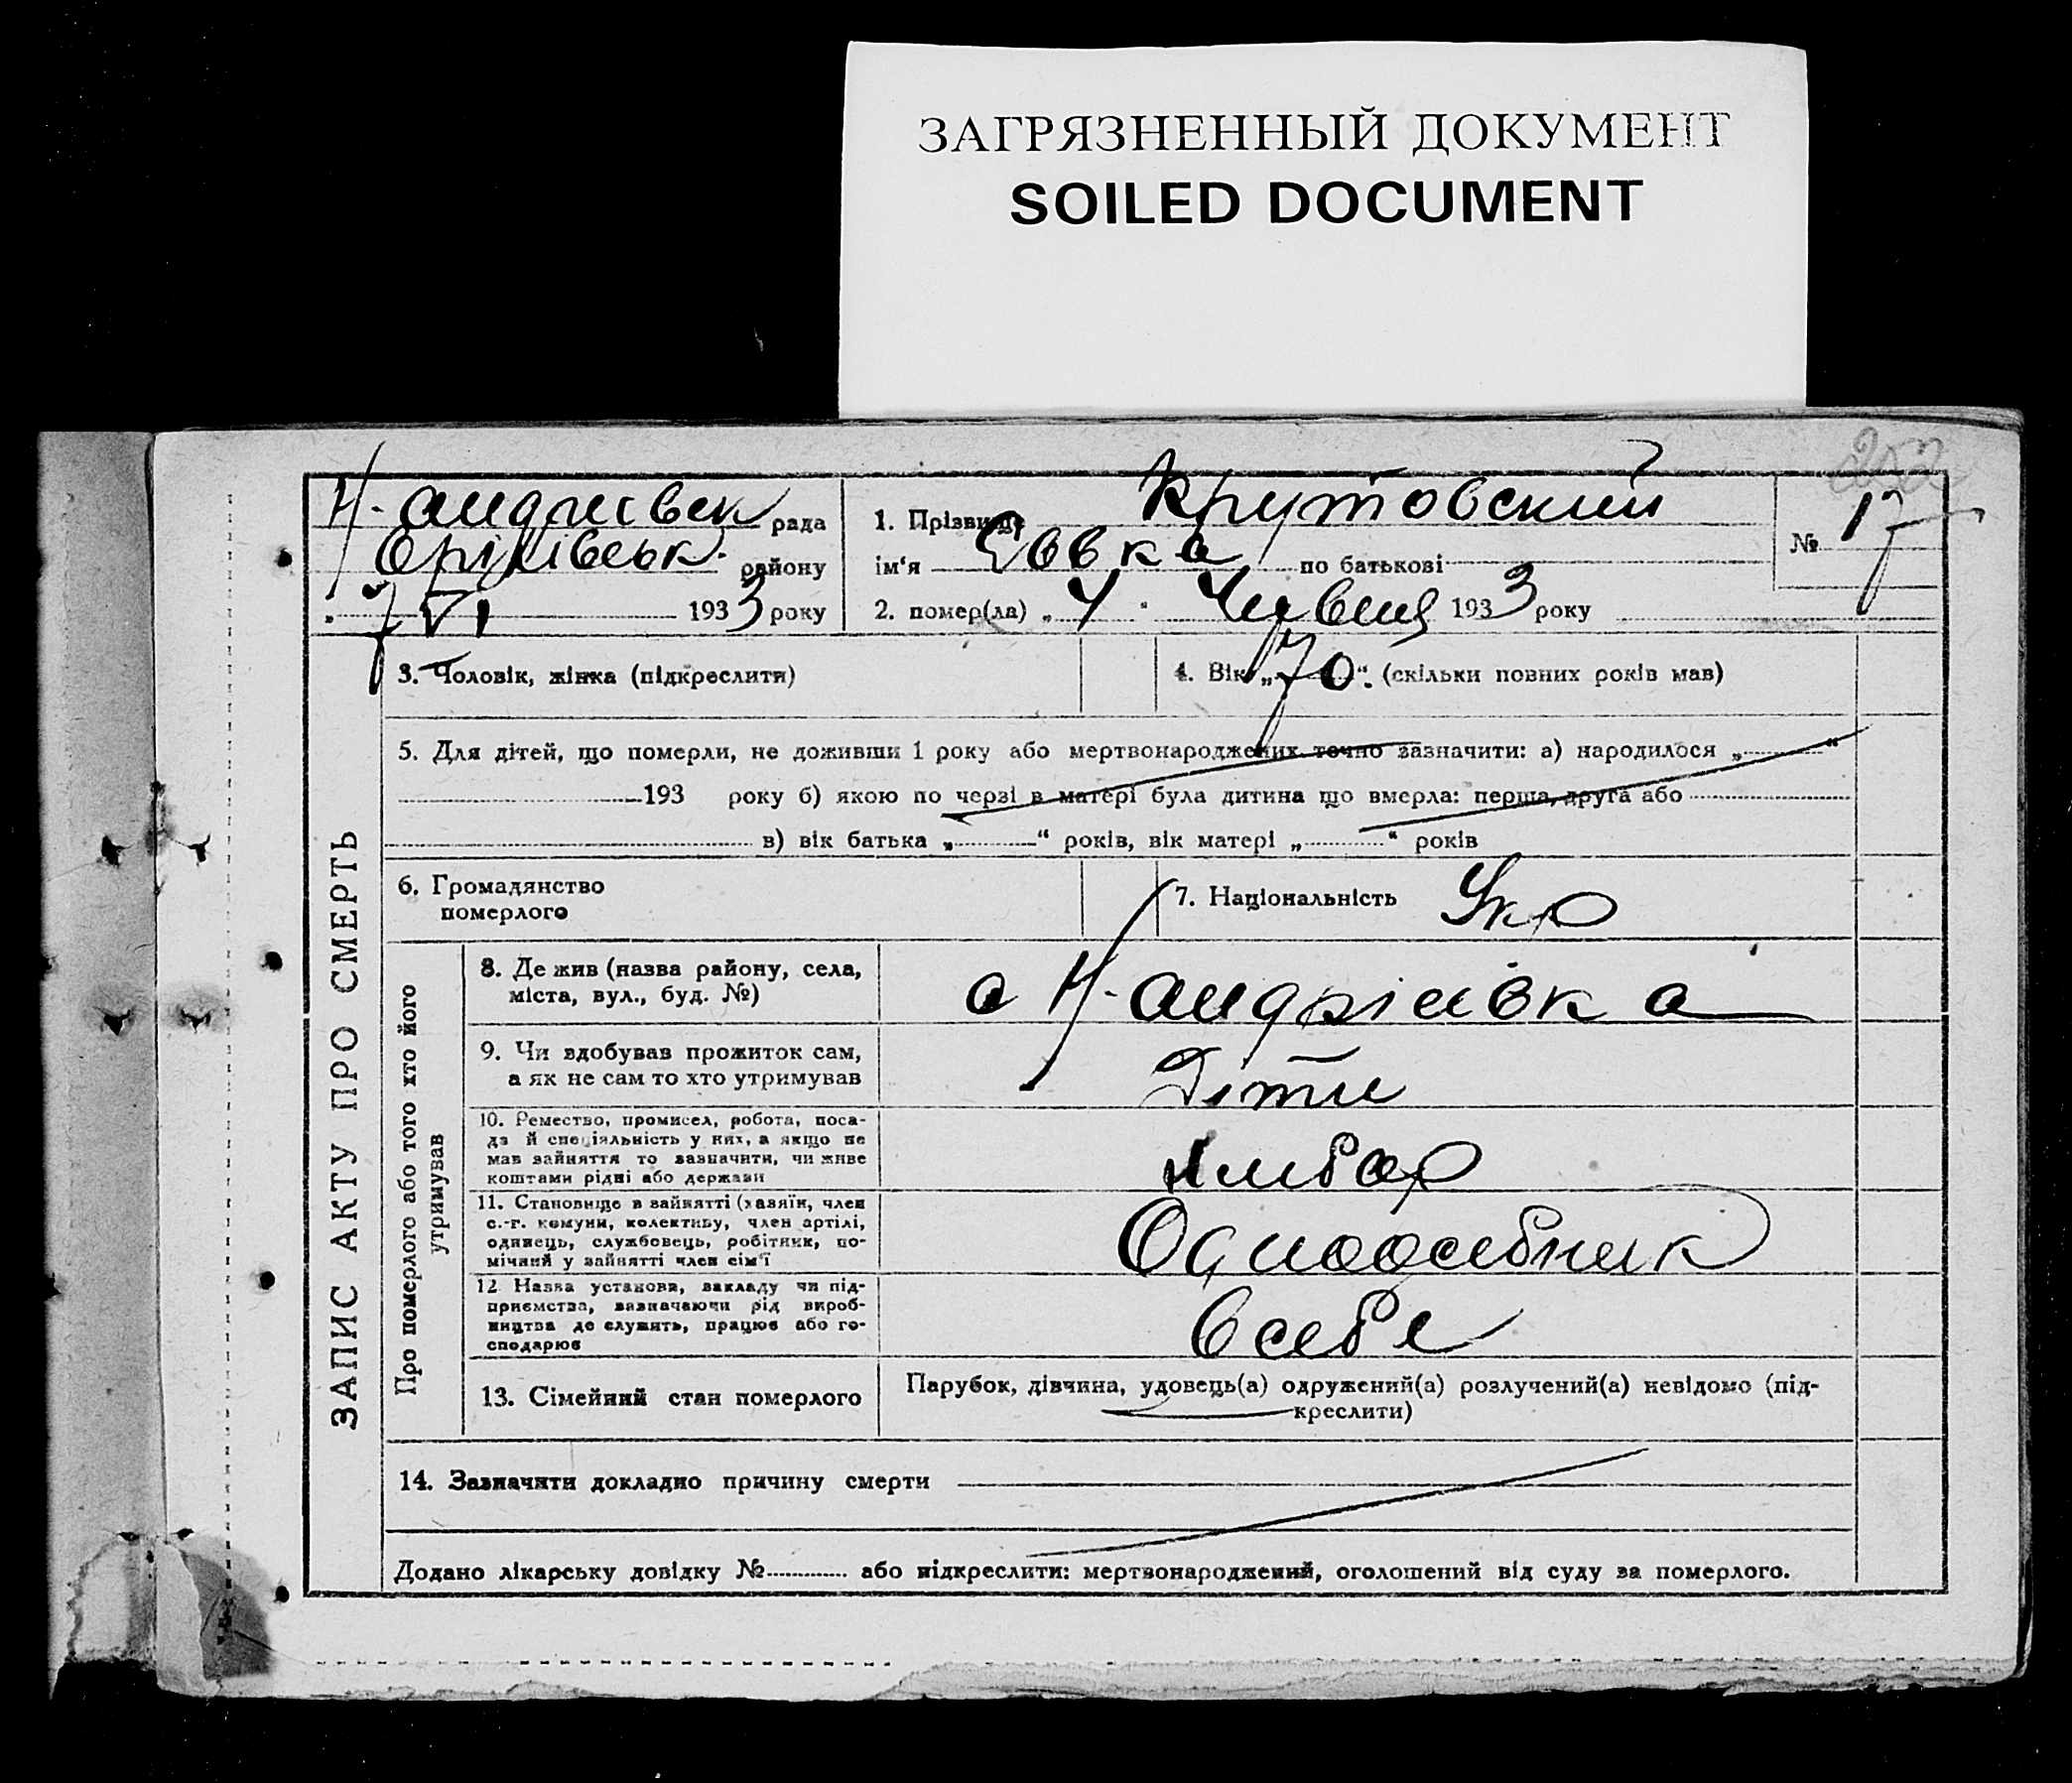 ЗАГРЯЗНЕННЫЙ ДОКУМЕНТ
SOILED DOCUMENT
17
Н-андриевск рада
району
7 VI 1933 року
1. Прізвище Крутовский
ім'я по батькові
2. помер(ла) „4" Червня 1933 року
№ 17
ЗАПИС АКТУ ПРО СМЕРТЬ
3. Чоловік, жінка (підкреслити)
4. Вік „70". (скільки повних років мав)
5. Для дітей, що померли, не доживши 1 року або мертвонароджених точно зазначити: а) народилося „ "
193 року б) якою по черзі в матері була дитина що вмерла: перша, друга або
в) вік батька „ " років, вік матері „ " років
6. Громадянство
померлого
7. Національність Укр
Про померлого або того хто його
утримував
8. Де жив (назва району, села,
міста, вул., буд. №)
Н-андріивка
9. Чи здобував прожиток сам,
а як не сам то хто утримував
Діти
10. Ремество, промисел, робота, поса-
да й спеціяльність у них, а якщо не
мав зайняття то зазначити, чи живе
коштами рідні або держави
Хлибор
11. Становище в зайнятті (хазяїн, член
с.-г. комуни, колективу, член артілі,
одинець, службовець, робітник, по-
мічний у зайнятті член сім'ї
Одноосебник
12 Назва установи, закладу чи під-
приємства, зазначаючи рід вироб-
ництва де служить, працює або го-
сподарює
В себе
13. Сімейний стан померлого
Парубок, дівчина, удовець(а) одружений(а) розлучений(а) невідомо (під-
креслити)
14. Зазначити докладно причину смерти
Додано лікарську довідку № або підкреслити: мертвонароджений, оголошений від суду за померлого.